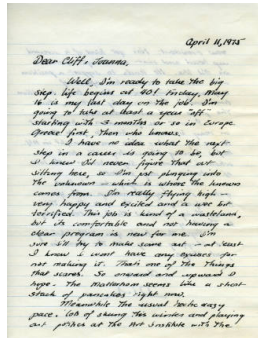 April 11, 1975
Dear Cliff, Joanna,
Well, I'm ready to take the big
step. Life begins at 40! Friday, May
16 is my last day on the job. I'm
going to take at least a year off
starting with 3 months or so in Europe
Greece first, then who knows.
I have no idea what the next
step in a career is going to be, but
I knew I'd never figure that out
sitting here, so I'm just plunging into
the unknown - which is where the known
comes from. I'm really flying high
very happy and excited and a wee bit
terrified. This job is kind of a wasteland,
but its comfortable and not having a
clear program is new for me. I'm
sure I'll try to make some art - at least
I know I wont have any excuses for
not making it. That's one of the things
that scares. So onward and upward I
hope. The Matterhorn seems like a short
stack of pancakes right now.
Meanwhile the usual hectic, crazy
pace. Lots of skiing this winter and playing
at the Art Institute with the